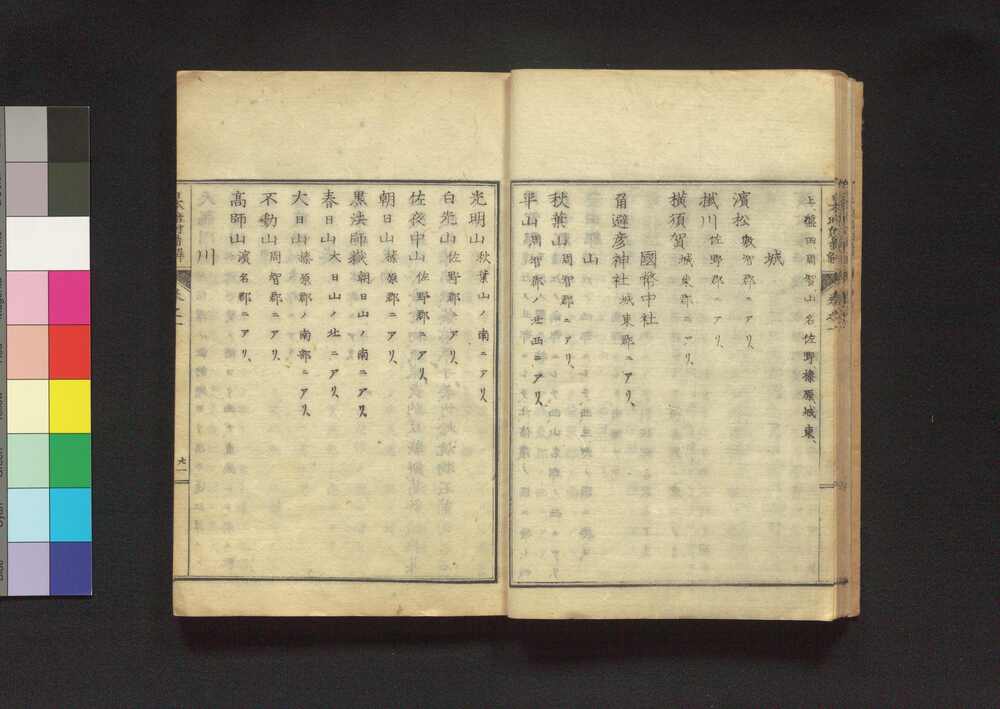 上、磐田周智山名佐野榛原城東、
城
濱松 敷智郡ニアリ、
掛川 佐野郡ニアリ、
横須賀 城東郡ニアリ、
國幣中社
甪避彦神社 城東郡ニアリ、
山
秋葉山 周智郡ニアリ、
平山 周智郡ノ北西ニアリ、
光明山 秋葉山ノ南ニアリ
白光山 佐野郡ニアリ、
佐夜中山 佐野郡ニアリ、
朝日山 榛原郡ニアリ、
黒法師嶽 朝日山ノ南ニアリ、
春日山 大日山ノ北ニアリ、
大日山 榛原郡ノ南部ニアリ、
不動山 周智郡ニアリ、
高師山 濱名郡ニアリ、
川